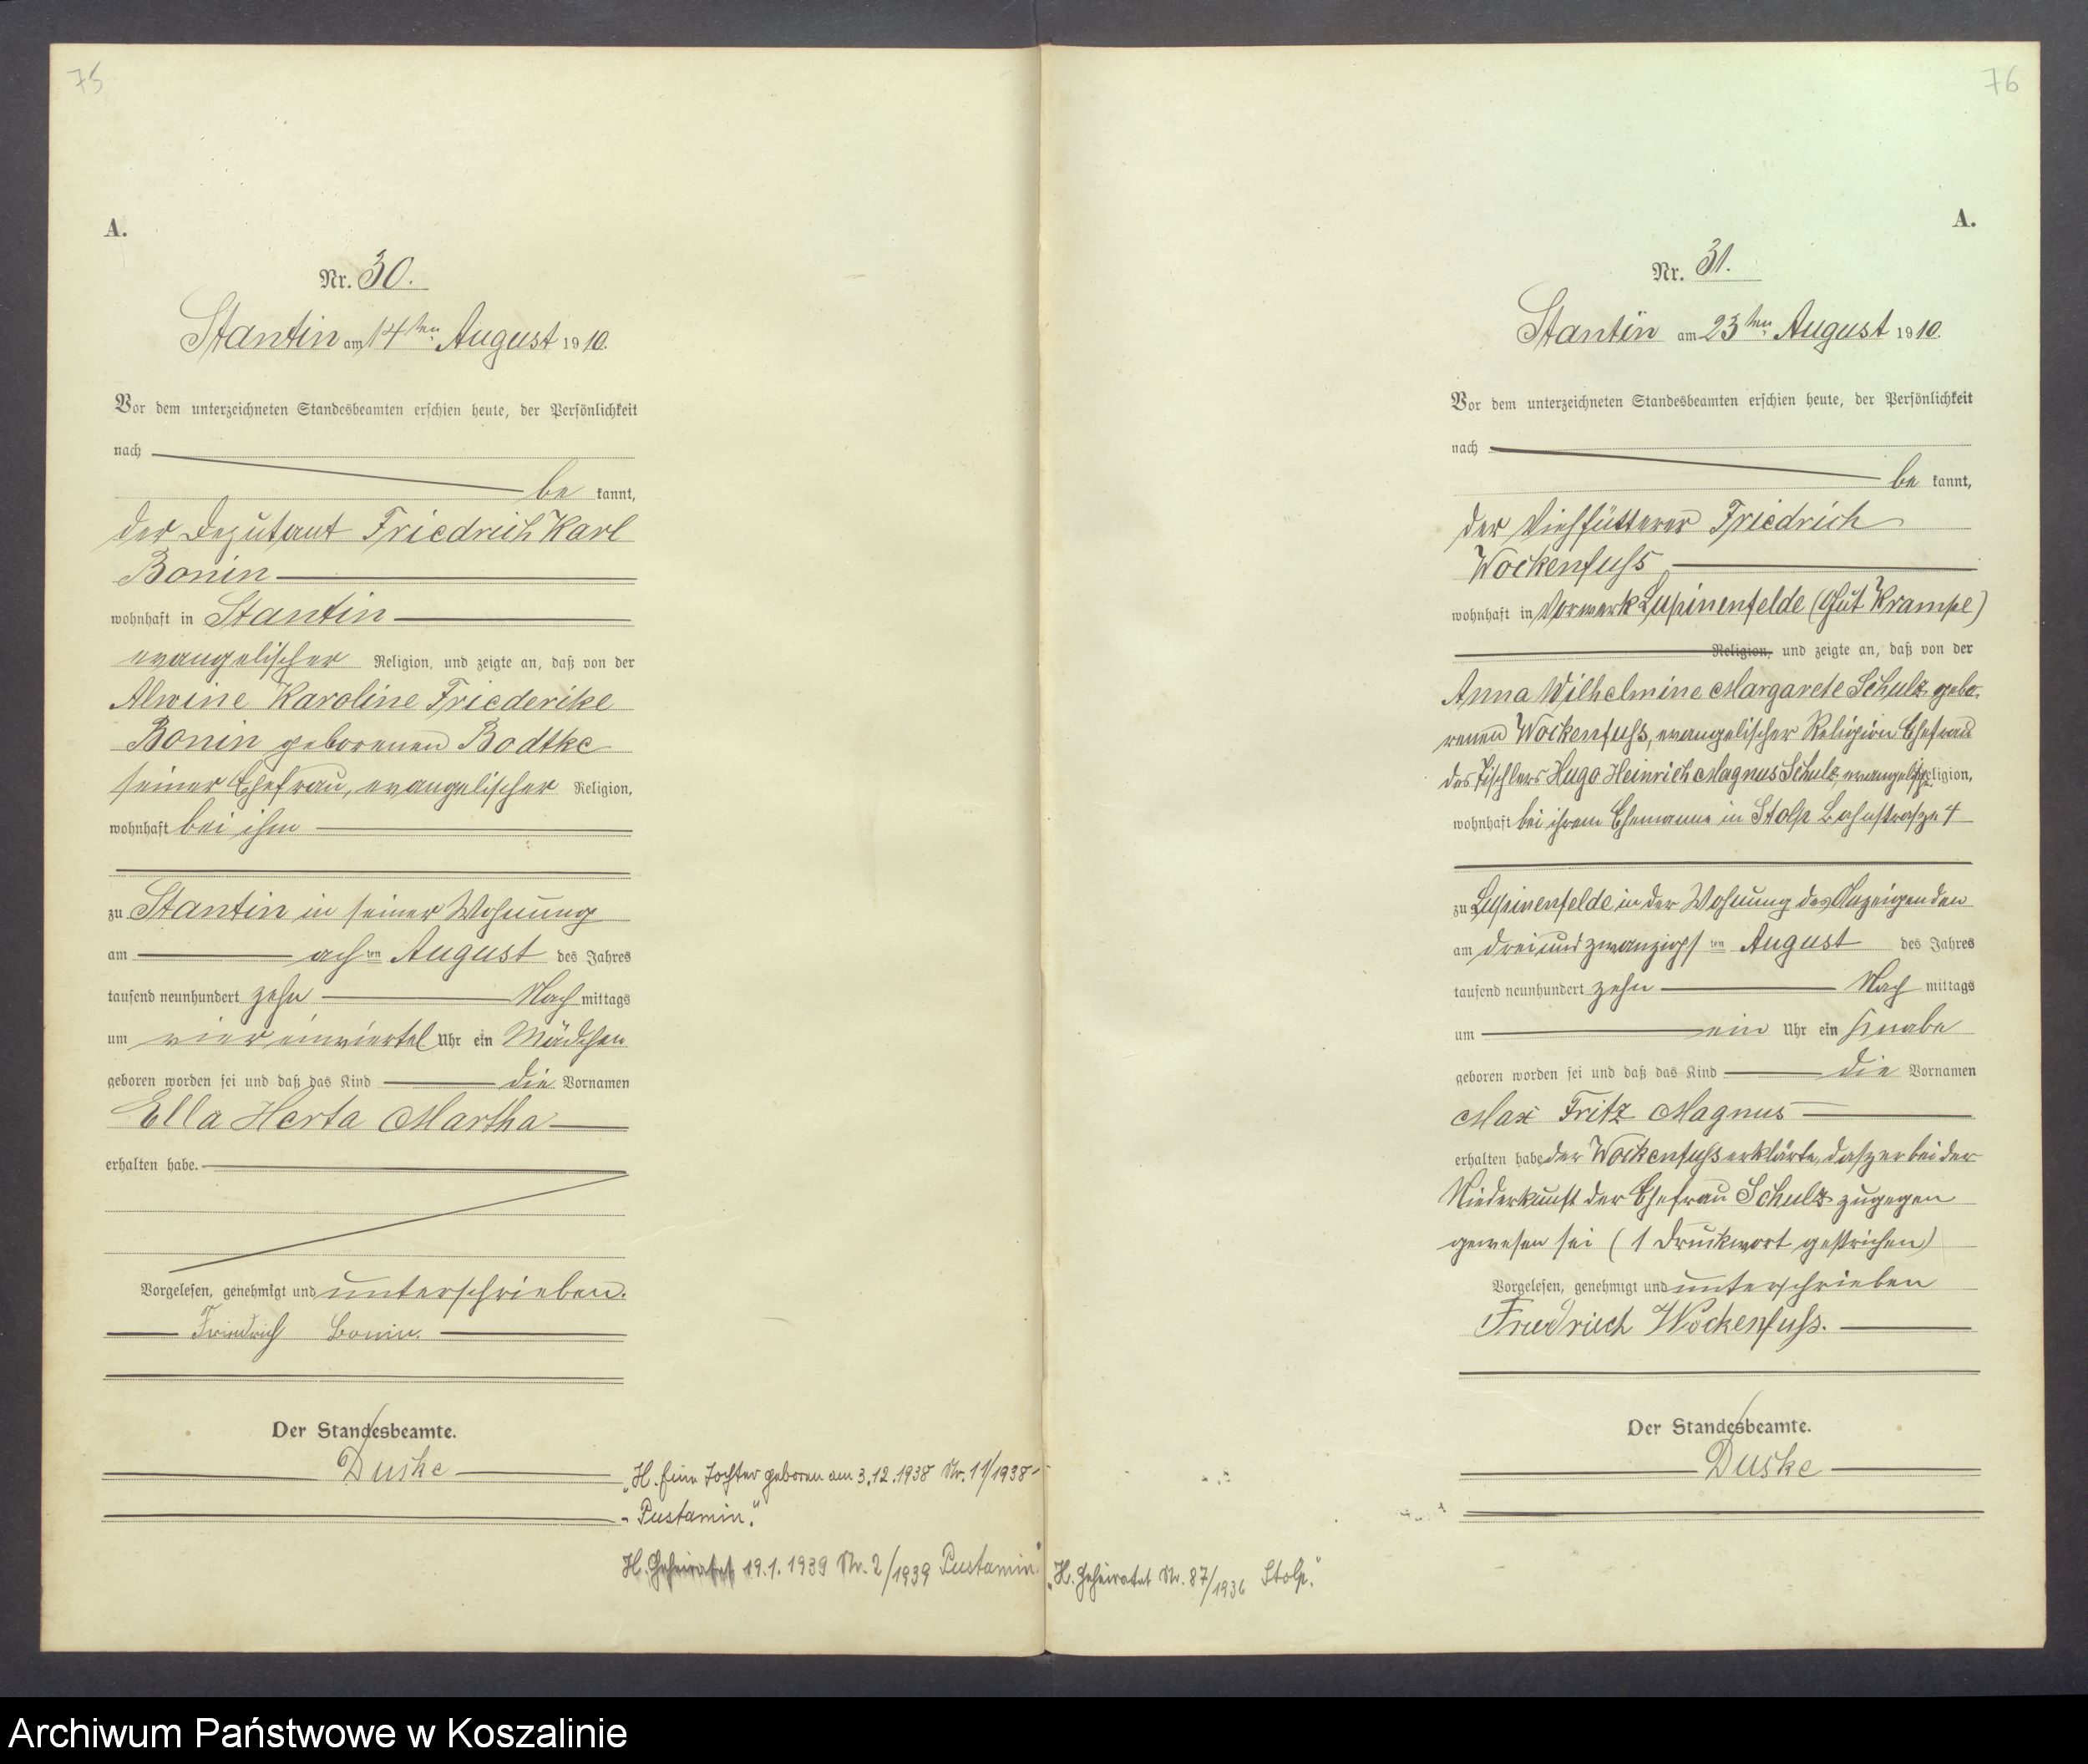 75
A.
Nr. 30.
Stantin am 14ten August 1910.
Vor dem unterzeichneten Standesbeamten erschien heute, der Persönlichkeit
nach
be kannt,
der Deputant Friedrich Karl
Bonin
wohnhaft in Stantin
evangelischer Religion, und zeigte an, daß von der
Alwine Karoline Friederike
Bonin geborenen Bodtke
seiner Ehefrau, evangelischer Religion,
wohnhaft bei ihm
zu Stantin in seiner Wohnung
am achten August des Jahres
tausend neunhundert zehn Nach mittags
um vier einviertel Uhr ein Mädchen
geboren worden sei und daß das Kind die Vornamen
Ella Herta Martha
erhalten habe.
Vorgelesen, genehmigt und unterschrieben.
Friedrich Bonin.
Der Standesbeamte.
Duske
„H. Eine Tochter geboren am 3.12.1938 Nr. 11/1938-
- Pustamin."
H. Geheiratet 19.1.1939 Nr. 2/1939 Pustamin"
76
A.
Nr. 31.
Stantin am 23ten August 1910.
Vor dem unterzeichneten Standesbeamten erschien heute, der Persönlichkeit
nach
be kannt,
der Viehfütterer Friedrich
Wockenfuß
wohnhaft in Vorwerk Lupinenfelde (Gut Krampe)
Religion, und zeigte an, daß von der
Anna Wilhelmine Margarete Schulz gebo¬
renen Wockenfuß, evangelischer Religion Ehefrau
des Tischlers Hugo Heinrich Magnus Schulz, evangelischer Religion,
wohnhaft bei ihrem Ehemanne in Stolp Bahnstrasze 4
zu Lupinenfelde in der Wohnung des Anzeigenden
am dreiundzwanzigsten August des Jahres
tausend neunhundert zehn Nach mittags
um ein Uhr ein Knabe
geboren worden sei und daß das Kind die Vornamen
Max Fritz Magnus
erhalten habe der Wockenfuß erklärte, dasz er bei der
Niederkunft der Ehefrau Schulz zugegen
gewesen sei (1 Druckwort gestrichen)
Vorgelesen, genehmigt und unterschrieben
Friedrich Wockenfuß.
Der Standesbeamte.
Duske
„H. Geheiratet Nr. 87/1936 Stolp."
Archiwum Państwowe w Koszalinie